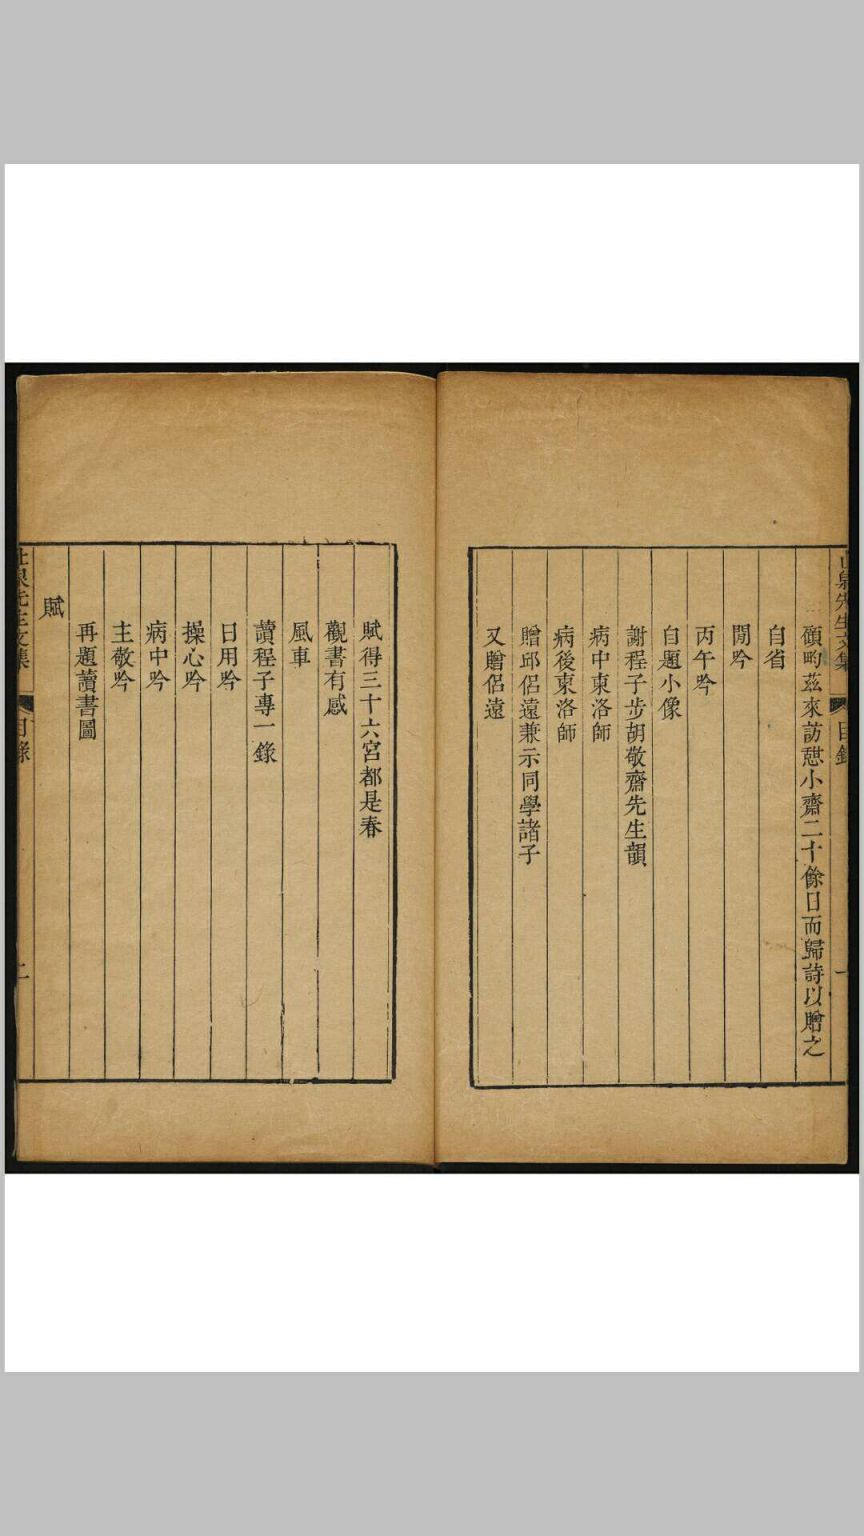 顧畇茲來訪憇小齋二十餘日而歸詩以贈之
自省
閒吟
丙午吟
自題小像
謝程子步胡敬齋先生韻
病中柬洛師
病後柬洛師
贈邱侶遠兼示同學諸子
又贈侶遠
賦得三十六宮都是春
觀書有感
風車
讀程子專一錄
日用吟
操心吟
病中吟
主敬吟
再題讀書圖
賦
泉先生文集
目錄
二